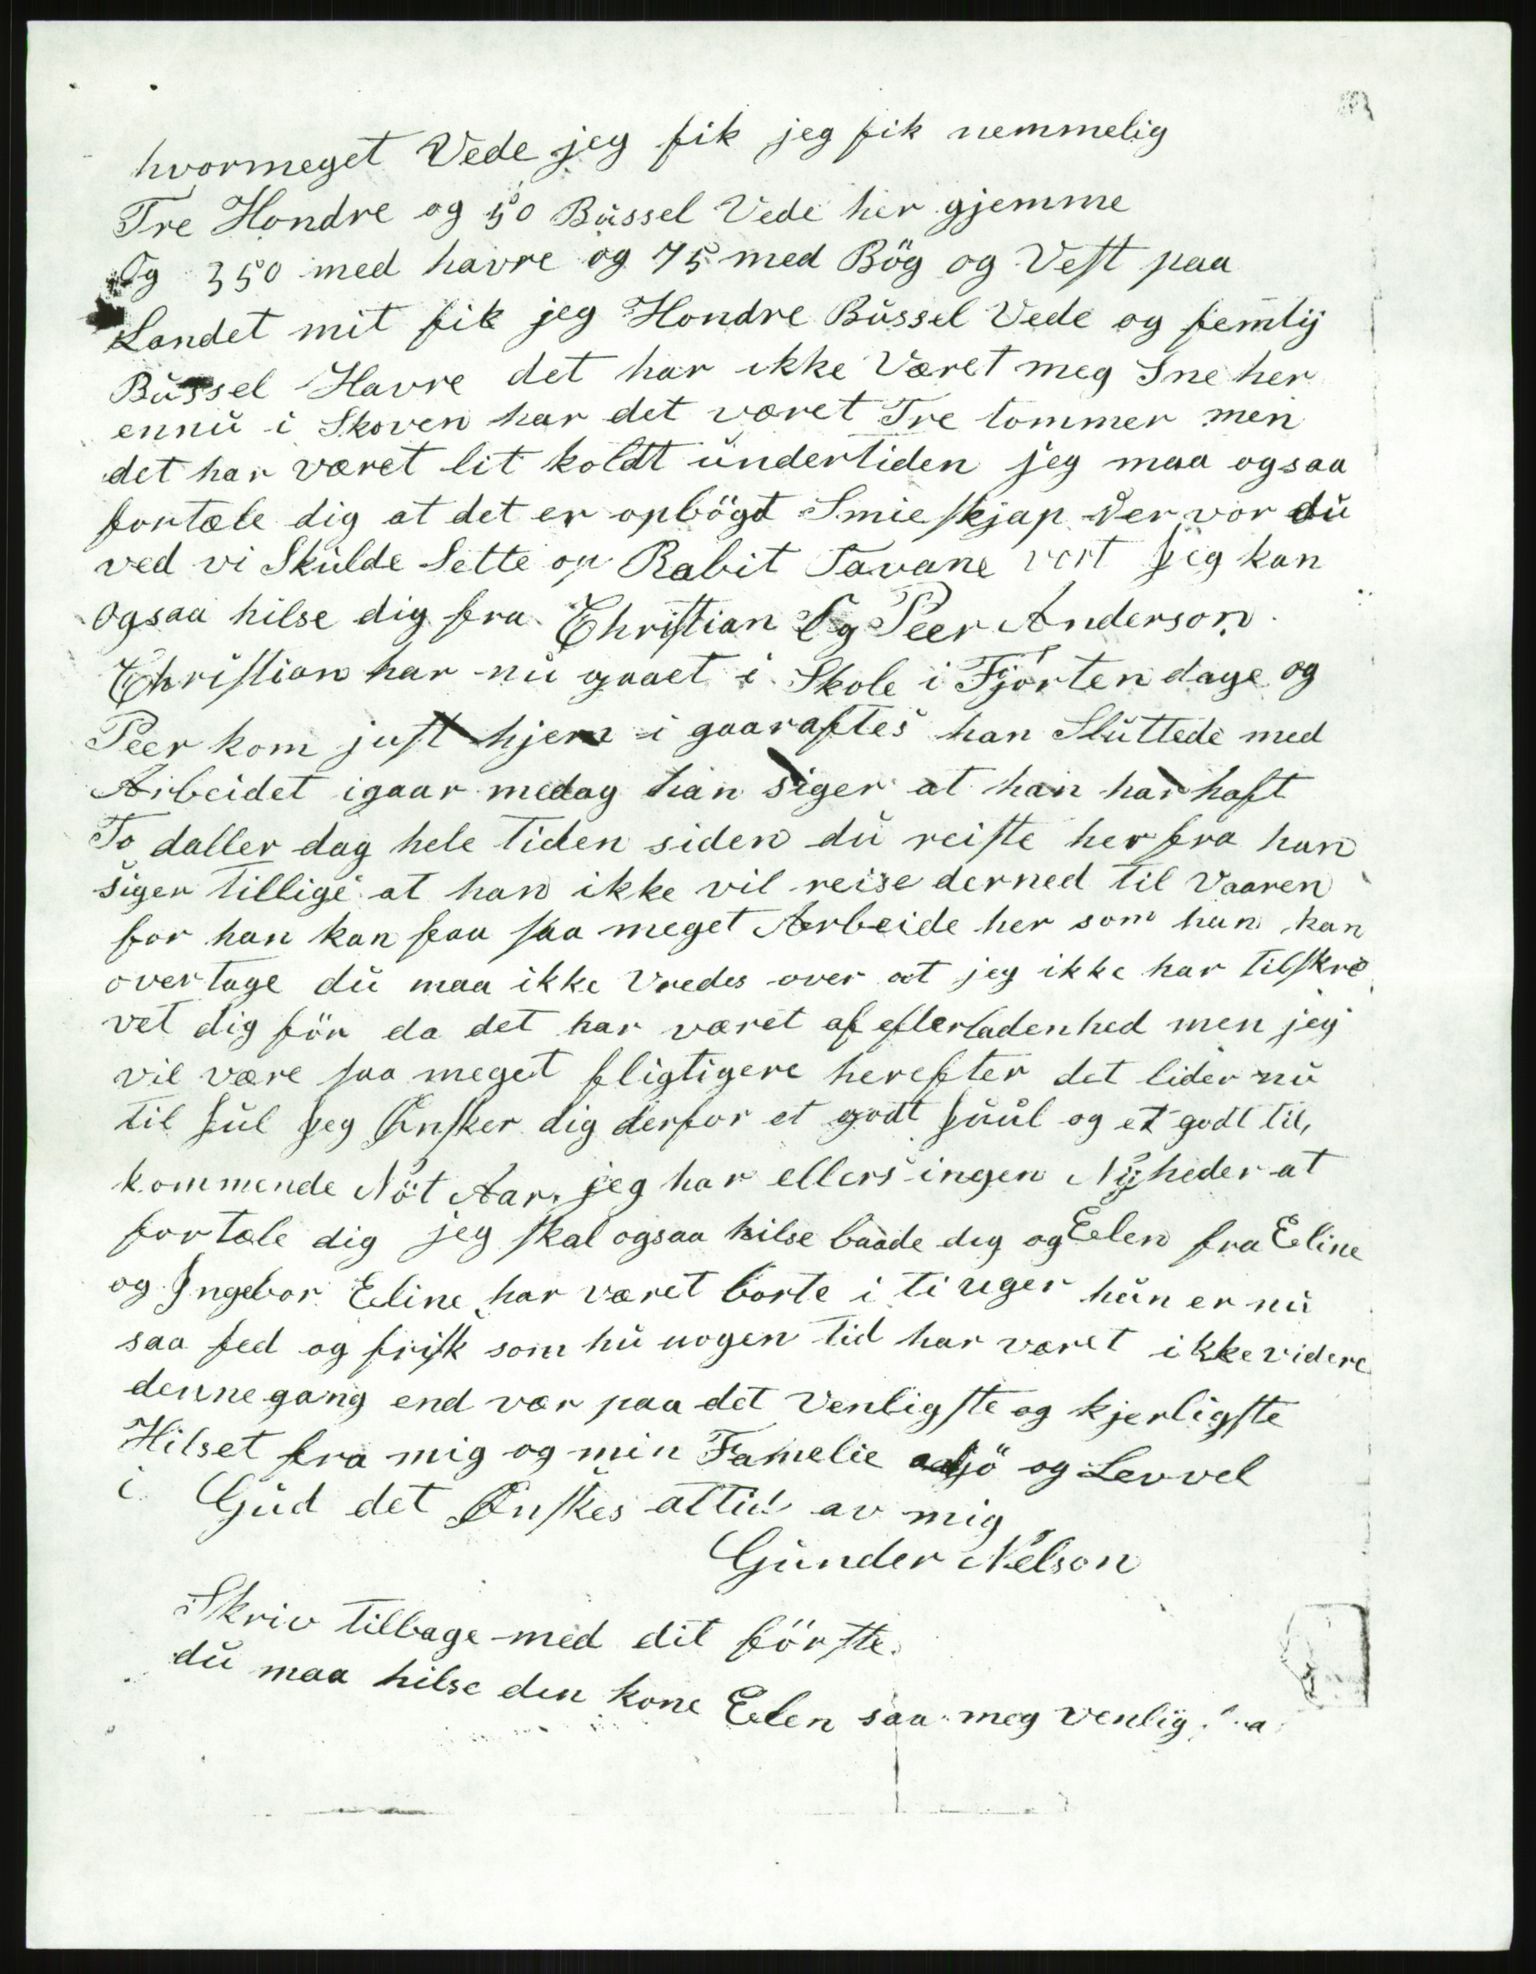 hvormeget Vede jeg fik jeg fik nemmelig
Tre Hondre og 50 Bussel Vede her gjemme
Og 350 med havre og 75 med Bög og Vest paa
Landet mit fik jeg Hondre Bussel Vede og femtij
Bussel Havre det har ikke Været meg Sne her
ennu i Skoven har det været Tre tommer men
det har været lit koldt undertiden jeg maa ogsaa
fortæle dig at det er opbögt Smie skjap der vor du
ved vi Skulde Sette op Rabit Tavane vort Jeg kan
Ogsaa hilse dig fra Christian Og Peer Anderson
Christian har nu gaaet i Skole i Fjorten dage og
Peer kom just hjem i gaaraftes han Sluttede med
Arbeidet igaar medag han siger at han har haft
To daller dag hele Tiden siden du reiste herfra han
siger tillige at han ikke vil reise derned til Vaaren
for han kan faa saa meget Arbeide her som han kan
overtage du maa ikke Vredes over at jeg ikke har tilskre
vet dig för da det har været af efterladenhed men jeg
vil være saa meget fligtigere herefter det lider nu
til Jul Jeg Ønsker dig derfor et godt Juul og et godt til,
kommende Nöt Aar. jeg har ellers ingen Nyheder at
fortæle dig jeg skal ogsaa hilse baade dig og Eelen fra Eeline
og Ingebor Eeline har været borte i ti uger hun er nu
saa fed og frisk som hu nogen tid har været ikke videre
denne gang end vær paa det Venligste og kjerligste
Hilset fra mig og min Famelie adjö og Levvel
i Gud det Ønskes altid av mig
Gunder Nelson
Skriv tilbage med dit förste.
du maa hilse den kone Eelen saa meg venlig